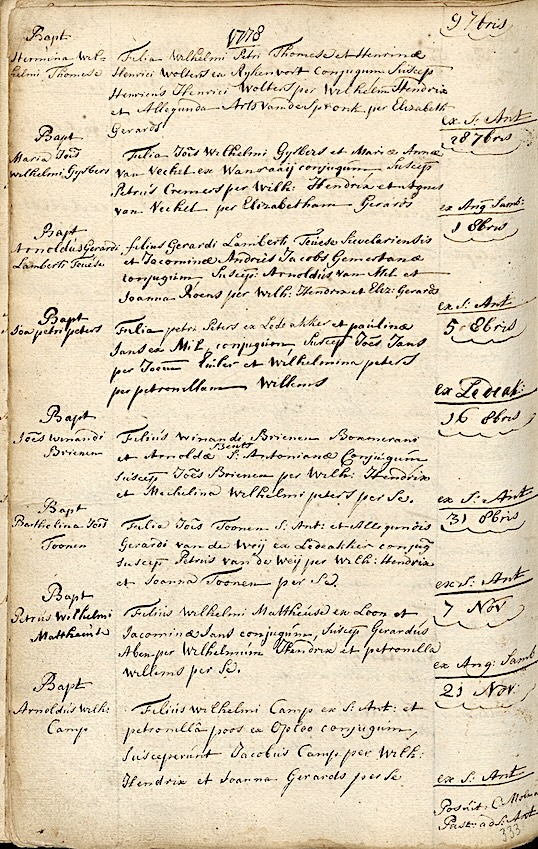 1778
Bapt
9 7bris
Hermina Wil-
helmi Thomese
Filia Wilhelmi Petri Thomese et Henrinæ
Henrici Wolters ex Rykenvort conjugum Suscep
Henricus Henrici Wolters per Wilhelm Hendrix
et Allegunda Arts van de Spronk per Elizabeth
Gerards
ex S: Ant
Bapt
28 7bris
Maria Jois
Wilhelmi Gysbers
Filia Jois Wilhelmi Gysbers et Mariæ Annæ
van Vechel ex Wanraaij conjugum, Suscep
Petrus Cremers per Wilh: Hendrix et Agnes
van Vechel per Elizabetham Gerards
ex Ang Samb:
Bapt
1 8bris
Arnoldus Gerardi
Lamberti Teuese
filius Gerardi Lamberti Teuese Sevelariensis
et Jacominæ Andreis Jacobs Gemertanæ
conjugum Suscep: Arnoldus van Mil et
Joanna Roens per Wilh: Hendrix et Eliz: Gerards
ex S: Ant
Bapt
5 8bris
Joa petri peters
Filia petri Peters ex Ledeakker et paulinæ
Jans ex Mil, conjugum Suscep Jois Jans
per Joem Luiler et Wilhelmina peters
per petronillam Willems
ex Ledeak:
Bapt
16 8bris
Jois winandi
Brienen
Filius winandi Brienen Boxmerani
et Arnoldæ Bents S: Antonianæ Conjugum
Suscep Jois Brienen per Wilh: Hendrix
et Mechelina Wilhelmi peters per se.
ex S: Ant
Bapt
31 8bris
Bartholina Jois
Toonen
Filia Jois Toonen S: Ant: et Allegundis
Gerardi van de Weij ex Ledeakker conjug
Suscep Petrus van de Weij per Wilh: Hendrix
et Joanna Toonen per Se.
ex S: Ant
Bapt
7 Nov
Petrus Wilhelmi
Mattheuse
Filius Wilhelmi Mattheuse ex Loon et
Jacominæ Jans conjugum, Suscep Gerardus
Aben per Wilhelmum Hendrix et petronilla
Willems per se.
ex Ang: Samb
Bapt
21 Nov
Arnoldus Wilh:
Camp
Filius Wilhelmi Camp ex S: Ant: et
petronilla poos ex Oploo conjugum,
Susceperunt Jacobus Camp per Wilh:
Hendrix et Joanna Gerards per se
ex S: Ant
Posuit: C
Past: ad S: Ant
333